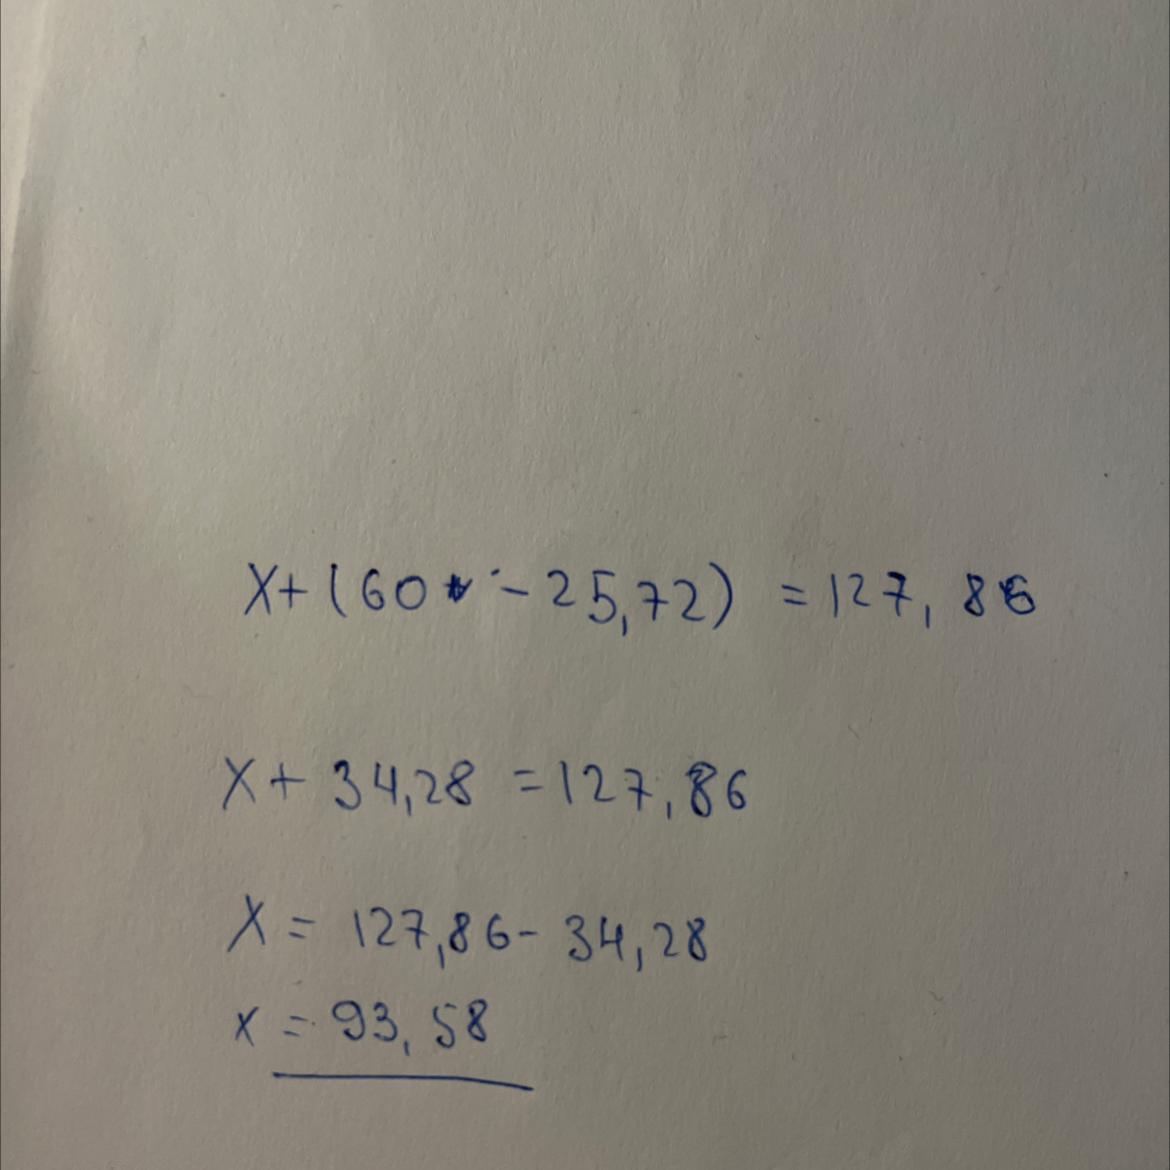 x+(60 - 25,72) = 127,86
x+ 34,28 = 127,86
x = 127,86 - 34,28
x = 93,58